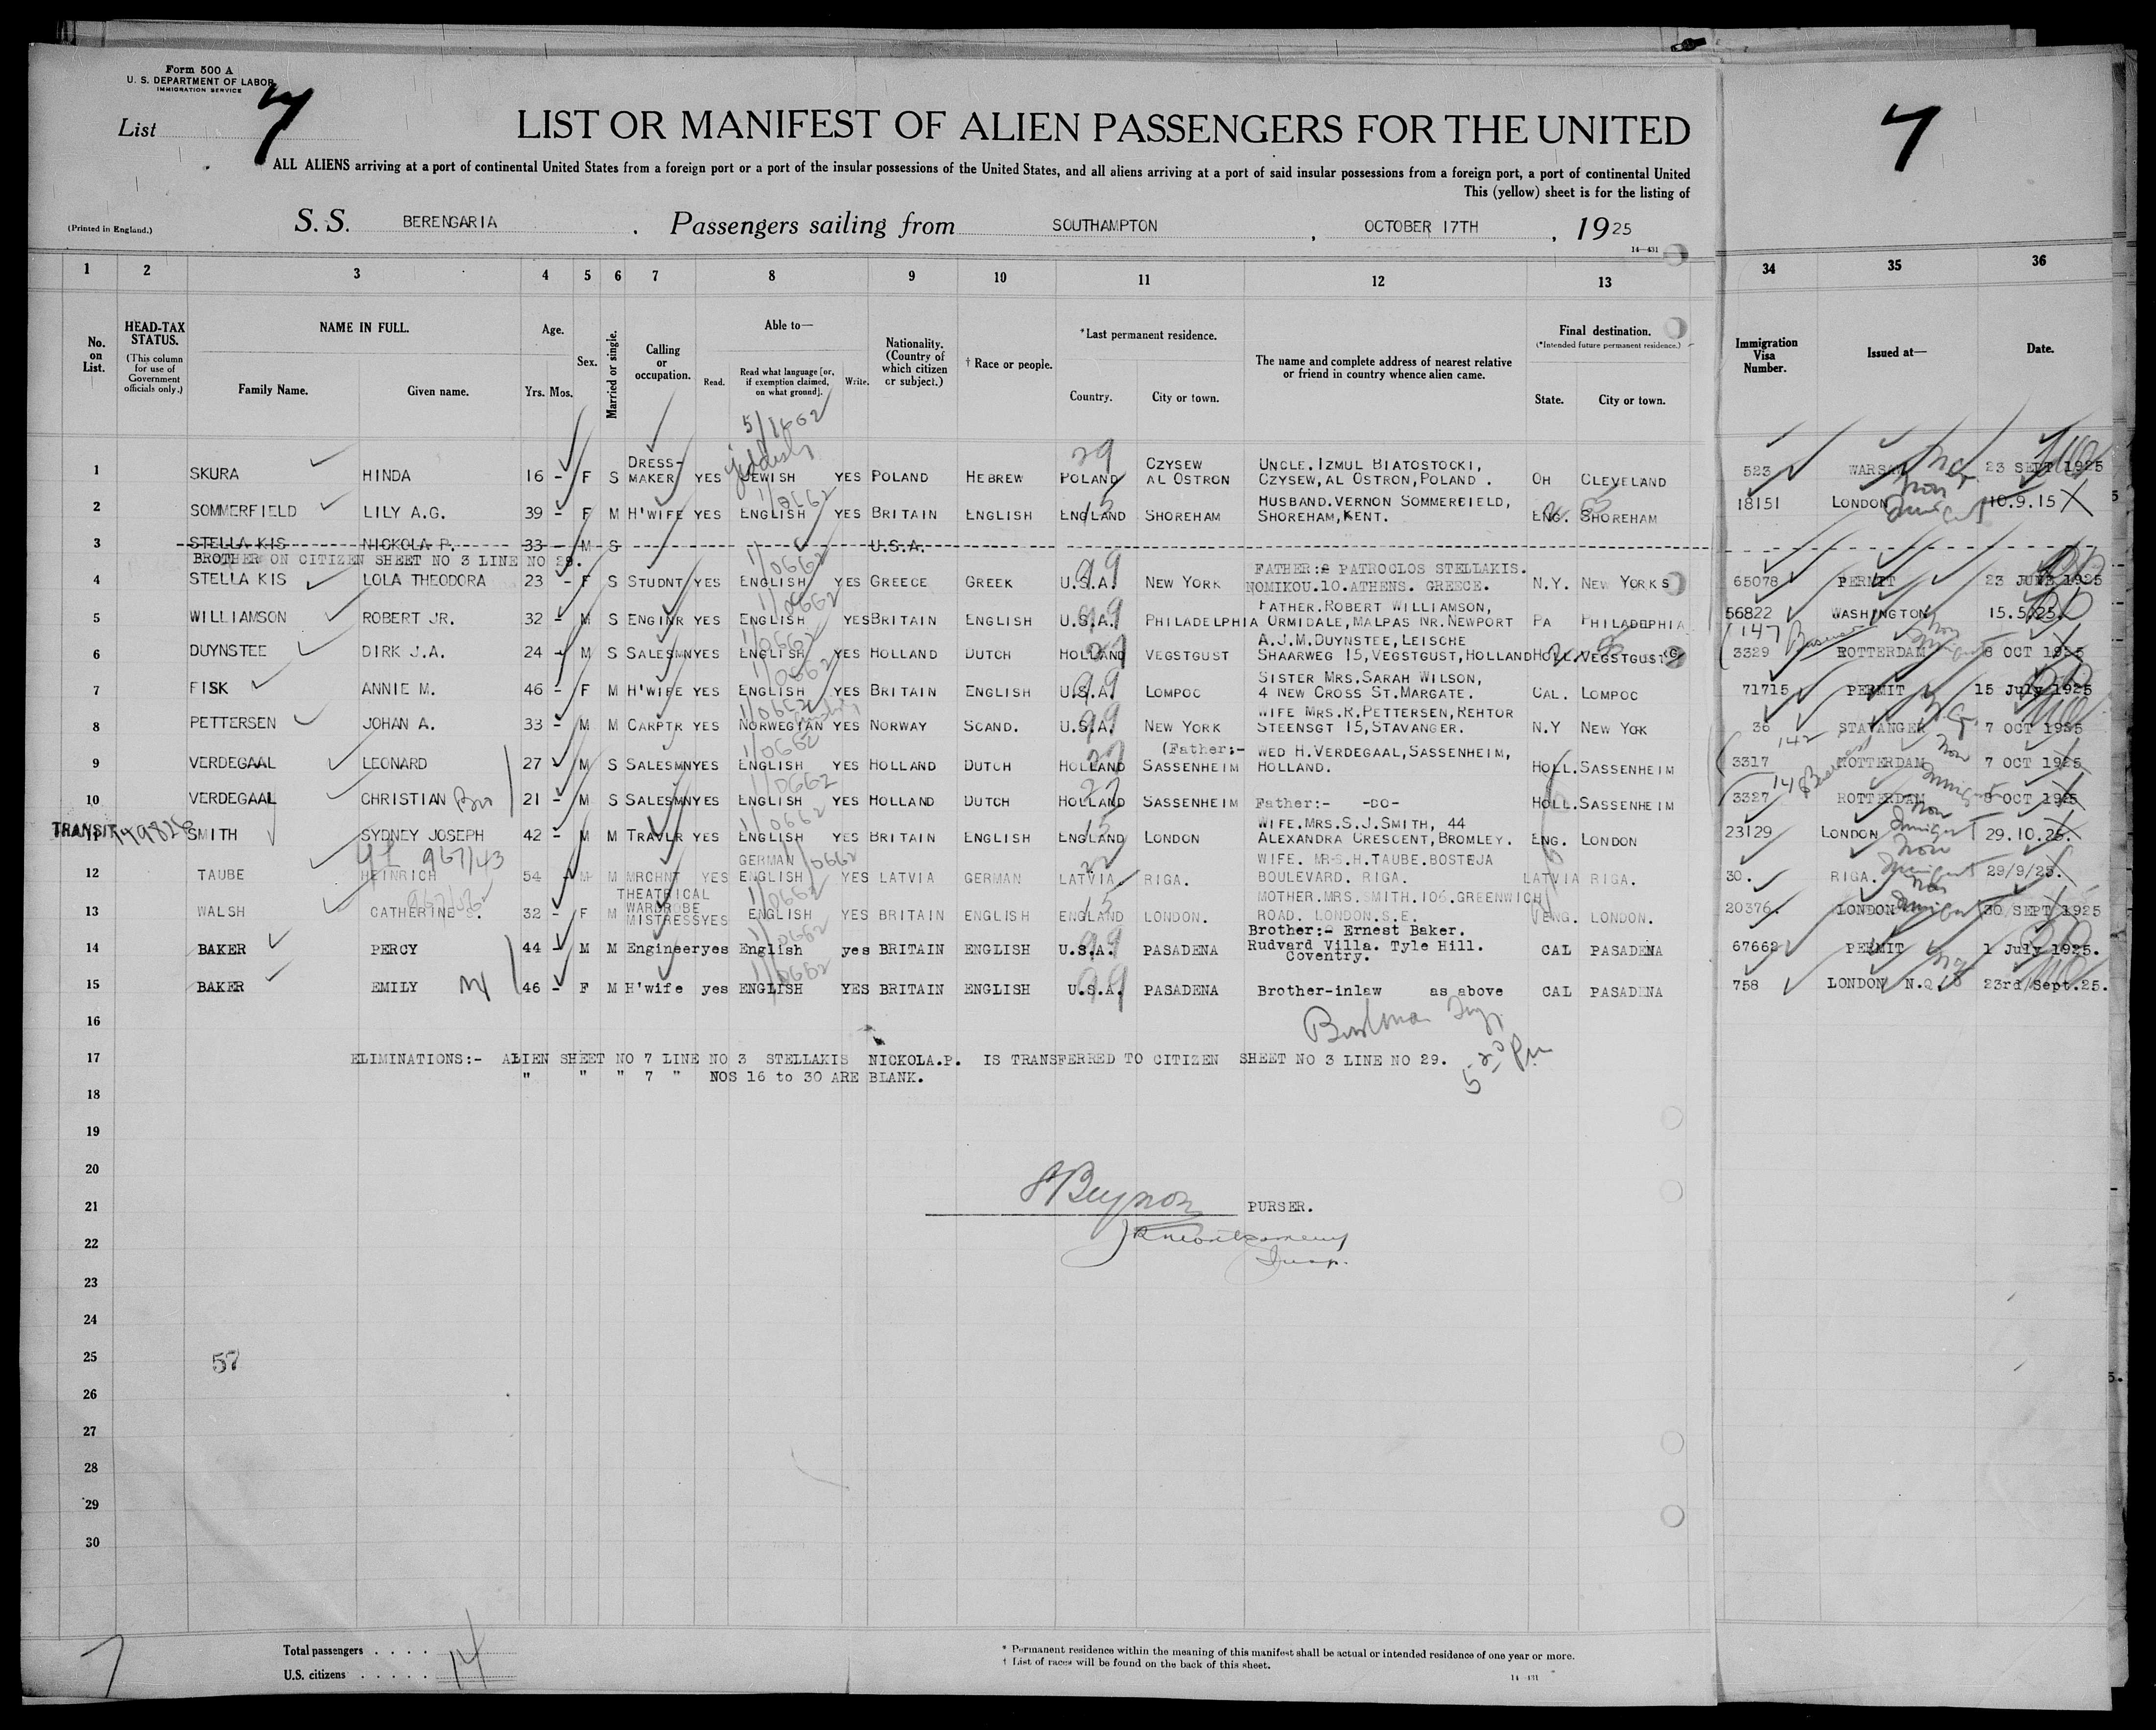 Form 500 A
U. S. DEPARTMENT OF LABOR
IMMIGRATION SERVICE
List 7
7
LIST OR MANIFEST OF ALIEN PASSENGERS FOR THE UNITED
ALL ALIENS arriving at a port of continental United States from a foreign port or a port of the insular possessions of the United States, and all aliens arriving at a port of said insular possessions from a foreign port, a port of continental United
This (yellow) sheet is for the listing of
(Printed in England.)
S. S. BERENGARIA . Passengers sailing from SOUTHAMPTON , OCTOBER 17TH , 1925
14—431
1 2 3 4 5 6 7 8 9 10 11 12 13 34 35 36
No. on List.
HEAD-TAX STATUS.
(This column for use of Government officials only.)
NAME IN FULL.
Family Name. Given name.
Age.
Yrs. Mos.
Sex.
Married or single.
Calling or occupation.
Able to—
Read. Read what language [or, if exemption claimed, on what ground]. Write.
Nationality. (Country of which citizen or subject.)
† Race or people.
*Last permanent residence.
Country. City or town.
The name and complete address of nearest relative or friend in country whence alien came.
Final destination.
(*Intended future permanent residence.)
State. City or town.
Immigration Visa Number.
Issued at—
Date.
1 SKURA HINDA 16 - F S DRESS-MAKER YES JEWISH Yiddish YES POLAND HEBREW POLAND 29 CZYSEW AL OSTRON UNCLE. IZMUL BIATOSTOCKI, CZYSEW, AL OSTRON, POLAND . OH CLEVELAND 523 WARSAW 23 SEPT 1925
2 SOMMERFIELD LILY A.G. 39 - F M H'WIFE YES ENGLISH 1/0662 YES BRITAIN ENGLISH ENGLAND 15 SHOREHAM HUSBAND. VERNON SOMMERFIELD, SHOREHAM, KENT. ENG. SHOREHAM 18151 LONDON Non Immigrant 10.9.15
3 STELLA KIS NICKOLA P. 33 - M S U.S.A.
BROTHER ON CITIZEN SHEET NO 3 LINE NO 29.
4 STELLA KIS LOLA THEODORA 23 - F S STUDNT YES ENGLISH 1/0662 YES GREECE GREEK U.S.A. 99 NEW YORK FATHER: PATROCLOS STELLAKIS. NOMIKOU. 10. ATHENS. GREECE. N.Y. NEW YORK S 65078 PERMIT 23 JUNE 1925
5 WILLIAMSON ROBERT JR. 32 - M S ENGINR YES ENGLISH 1/0662 YES BRITAIN ENGLISH U.S.A. 99 PHILADELPHIA FATHER. ROBERT WILLIAMSON, ORMIDALE, MALPAS NR. NEWPORT PA PHILADEPHIA 56822 WASHINGTON 15.5.25.
6 DUYNSTEE DIRK J.A. 24 - M S SALESMN YES ENGLISH 1/0662 YES HOLLAND DUTCH HOLLAND 27 VEGSTGUST A.J.M. DUYNSTEE, LEISCHE SHAARWEG 15, VEGSTGUST, HOLLAND HOLL. VEGSTGUST 147 3329 ROTTERDAM Non Immigrant 8 OCT 1925
7 FISK ANNIE M. 46 - F M H'WIFE YES ENGLISH 1/0662 YES BRITAIN ENGLISH U.S.A. 99 LOMPOC SISTER MRS. SARAH WILSON, 4 NEW CROSS ST. MARGATE. CAL. LOMPOC 71715 PERMIT 15 July 1925
8 PETTERSEN JOHAN A. 33 - M M CARPTR YES NORWEGIAN 1/0662 YES NORWAY SCAND. U.S.A. 99 NEW YORK WIFE MRS. R. PETTERSEN, REHTOR STEENSGT 15, STAVANGER. N.Y NEW YOK 36 STAVANGER 7 OCT 1925
9 VERDEGAAL LEONARD 27 - M S SALESMN YES ENGLISH 1/0662 YES HOLLAND DUTCH HOLLAND 27 SASSENHEIM (Father:- WED H. VERDEGAAL, SASSENHEIM, HOLLAND. HOLL. SASSENHEIM 142 3317 ROTTERDAM Non 7 OCT 1925
10 VERDEGAAL CHRISTIAN Bro 21 - M S SALESMN YES ENGLISH 1/0662 YES HOLLAND DUTCH HOLLAND 27 SASSENHEIM Father:- -DO- HOLL. SASSENHEIM 3327 ROTTERDAM Immigrant 8 OCT 1925
TRANSIT 11 SMITH SYDNEY JOSEPH 42 - M M TRAVLR YES ENGLISH 1/0662 YES BRITAIN ENGLISH ENGLAND 15 LONDON WIFE. MRS. S.J. SMITH, 44 ALEXANDRA CRESCENT, BROMLEY. ENG. LONDON 23129 LONDON Non Immigrant 29.10.25.
12 TAUBE HEINRICH 54 - M M MRCHNT YES GERMAN ENGLISH 1/0662 YES LATVIA GERMAN LATVIA. RIGA. WIFE. MRS. H. TAUBE. BOSTEJA BOULEVARD. RIGA. LATVIA RIGA. 30. RIGA. Non Immigrant 29/9/25.
13 WALSH CATHERINE S. 32 - F M THEATRICAL WARDROBE MISTRESS YES ENGLISH 1/0662 YES BRITAIN ENGLISH ENGLAND 15 LONDON. MOTHER. MRS. SMITH. 106. GREENWICH ROAD. LONDON. S.E. ENG. LONDON. 20376. LONDON Non Immigrant 30 SEPT 1925
14 BAKER PERCY 44 - M M Engineer yes English 1/0662 yes BRITAIN ENGLISH U.S.A. 99 PASADENA Brother:- Ernest Baker. Rudvard Villa. Tyle Hill. Coventry. CAL PASADENA 67662 PERMIT 1 July 1925.
15 BAKER EMILY 46 - F M H'wife yes ENGLISH 1/0662 YES BRITAIN ENGLISH U.S.A. 99 PASADENA Brother-inlaw as above CAL PASADENA 758 LONDON N.Q. 23rd Sept.25.
16
5 20 Pm
17 ELIMINATIONS:- ALIEN SHEET NO 7 LINE NO 3 STELLAKIS NICKOLA.P. IS TRANSFERRED TO CITIZEN SHEET NO 3 LINE NO 29.
" " " 7 " NOS 16 to 30 ARE BLANK.
18
19
20
21 PURSER.
22
Insp.
23
24
25 57
26
27
28
29
30
Total passengers . . . .
U.S. citizens . . . . . 14
* Permanent residence within the meaning of this manifest shall be actual or intended residence of one year or more.
† List of races will be found on the back of this sheet.
14—431